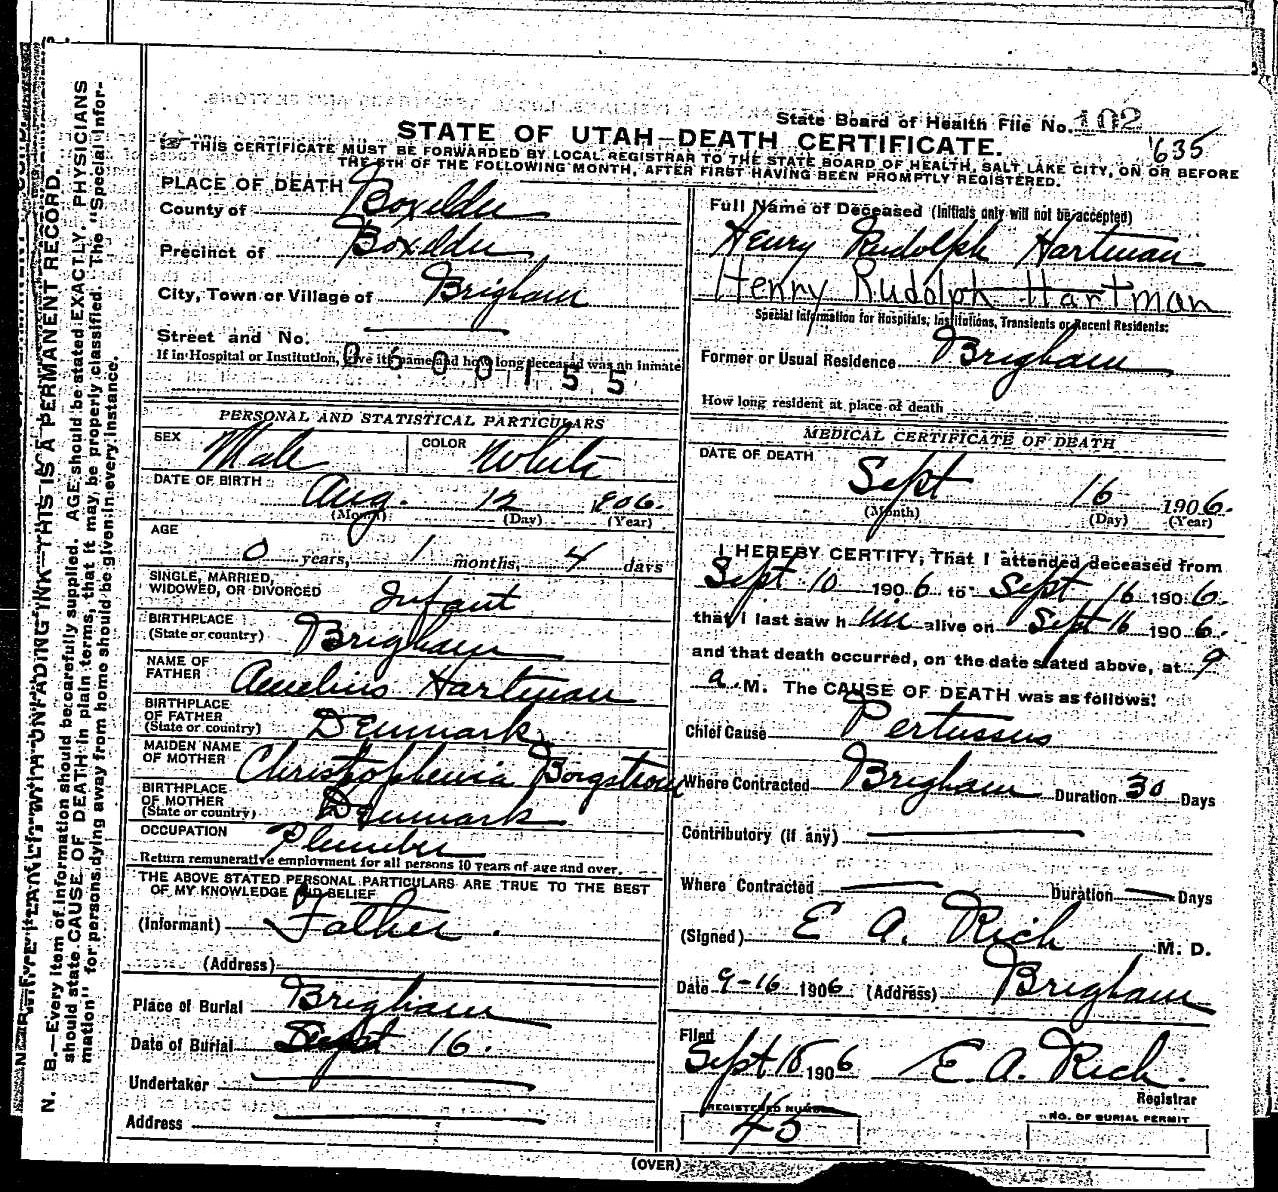 State Board of Health File No. 102
'635
STATE OF UTAH—DEATH CERTIFICATE.
THIS CERTIFICATE MUST BE FORWARDED BY LOCAL REGISTRAR TO THE STATE BOARD OF HEALTH, SALT LAKE CITY, ON OR BEFORE
THE 5TH OF THE FOLLOWING MONTH, AFTER FIRST HAVING BEEN PROMPTLY REGISTERED.
PLACE OF DEATH
County of Boxelder
Precinct of Boxelder
City, Town or Village of Brigham
Street and No.
If in Hospital or Institution, give its name and how long deceased was an inmate
0600155
PERSONAL AND STATISTICAL PARTICULARS
SEX Male COLOR White
DATE OF BIRTH Aug. 12 1906.
(Month) (Day) (Year)
AGE
0 years, 1 months, 4 days
SINGLE, MARRIED,
WIDOWED, OR DIVORCED Infant
BIRTHPLACE
(State or country) Brigham
NAME OF
FATHER Amelius Hartman
BIRTHPLACE
OF FATHER
(State or country) Denmark
MAIDEN NAME
OF MOTHER Borgstrom
BIRTHPLACE
OF MOTHER
(State or country) Denmark
OCCUPATION Plumber
Return remunerative employment for all persons 10 years of age and over.
THE ABOVE STATED PERSONAL PARTICULARS ARE TRUE TO THE BEST
OF MY KNOWLEDGE AND BELIEF
(Informant) Father.
(Address)
Place of Burial Brigham
Date of Burial Sept 16.
Undertaker
Address
Full Name of Deceased (Initials only will not be accepted)
Henry Rudolph Hartman
Henry Rudolph Hartman
Special Information for Hospitals, Institutions, Transients or Recent Residents:
Former or Usual Residence Brigham
How long resident at place of death
MEDICAL CERTIFICATE OF DEATH
DATE OF DEATH
Sept 16 1906.
(Month) (Day) (Year)
I HEREBY CERTIFY, That I attended deceased from
Sept 10 1906 to Sept 16 1906.
that I last saw him alive on Sept 16 1906.
and that death occurred, on the date stated above, at 9
a. M. The CAUSE OF DEATH was as follows:
Chief Cause Pertussus
Where Contracted Brigham Duration 30 Days
Contributory (if any)
Where Contracted Duration Days
(Signed) E A. Rich M. D.
Date 9-16 1906 (Address) Brigham
Filed
Sept 18 1906 E. A. Rich.
Registrar
REGISTERED NUMBER
45
NO. OF BURIAL PERMIT
(OVER)
WRITE PLAINLY WITH UNFADING INK—THIS IS A PERMANENT RECORD.
N. B.—Every item of information should be carefully supplied. AGE should be stated EXACTLY. PHYSICIANS
should state CAUSE OF DEATH in plain terms, that it may be properly classified. The "Special Infor-
mation" for persons dying away from home should be given in every instance.